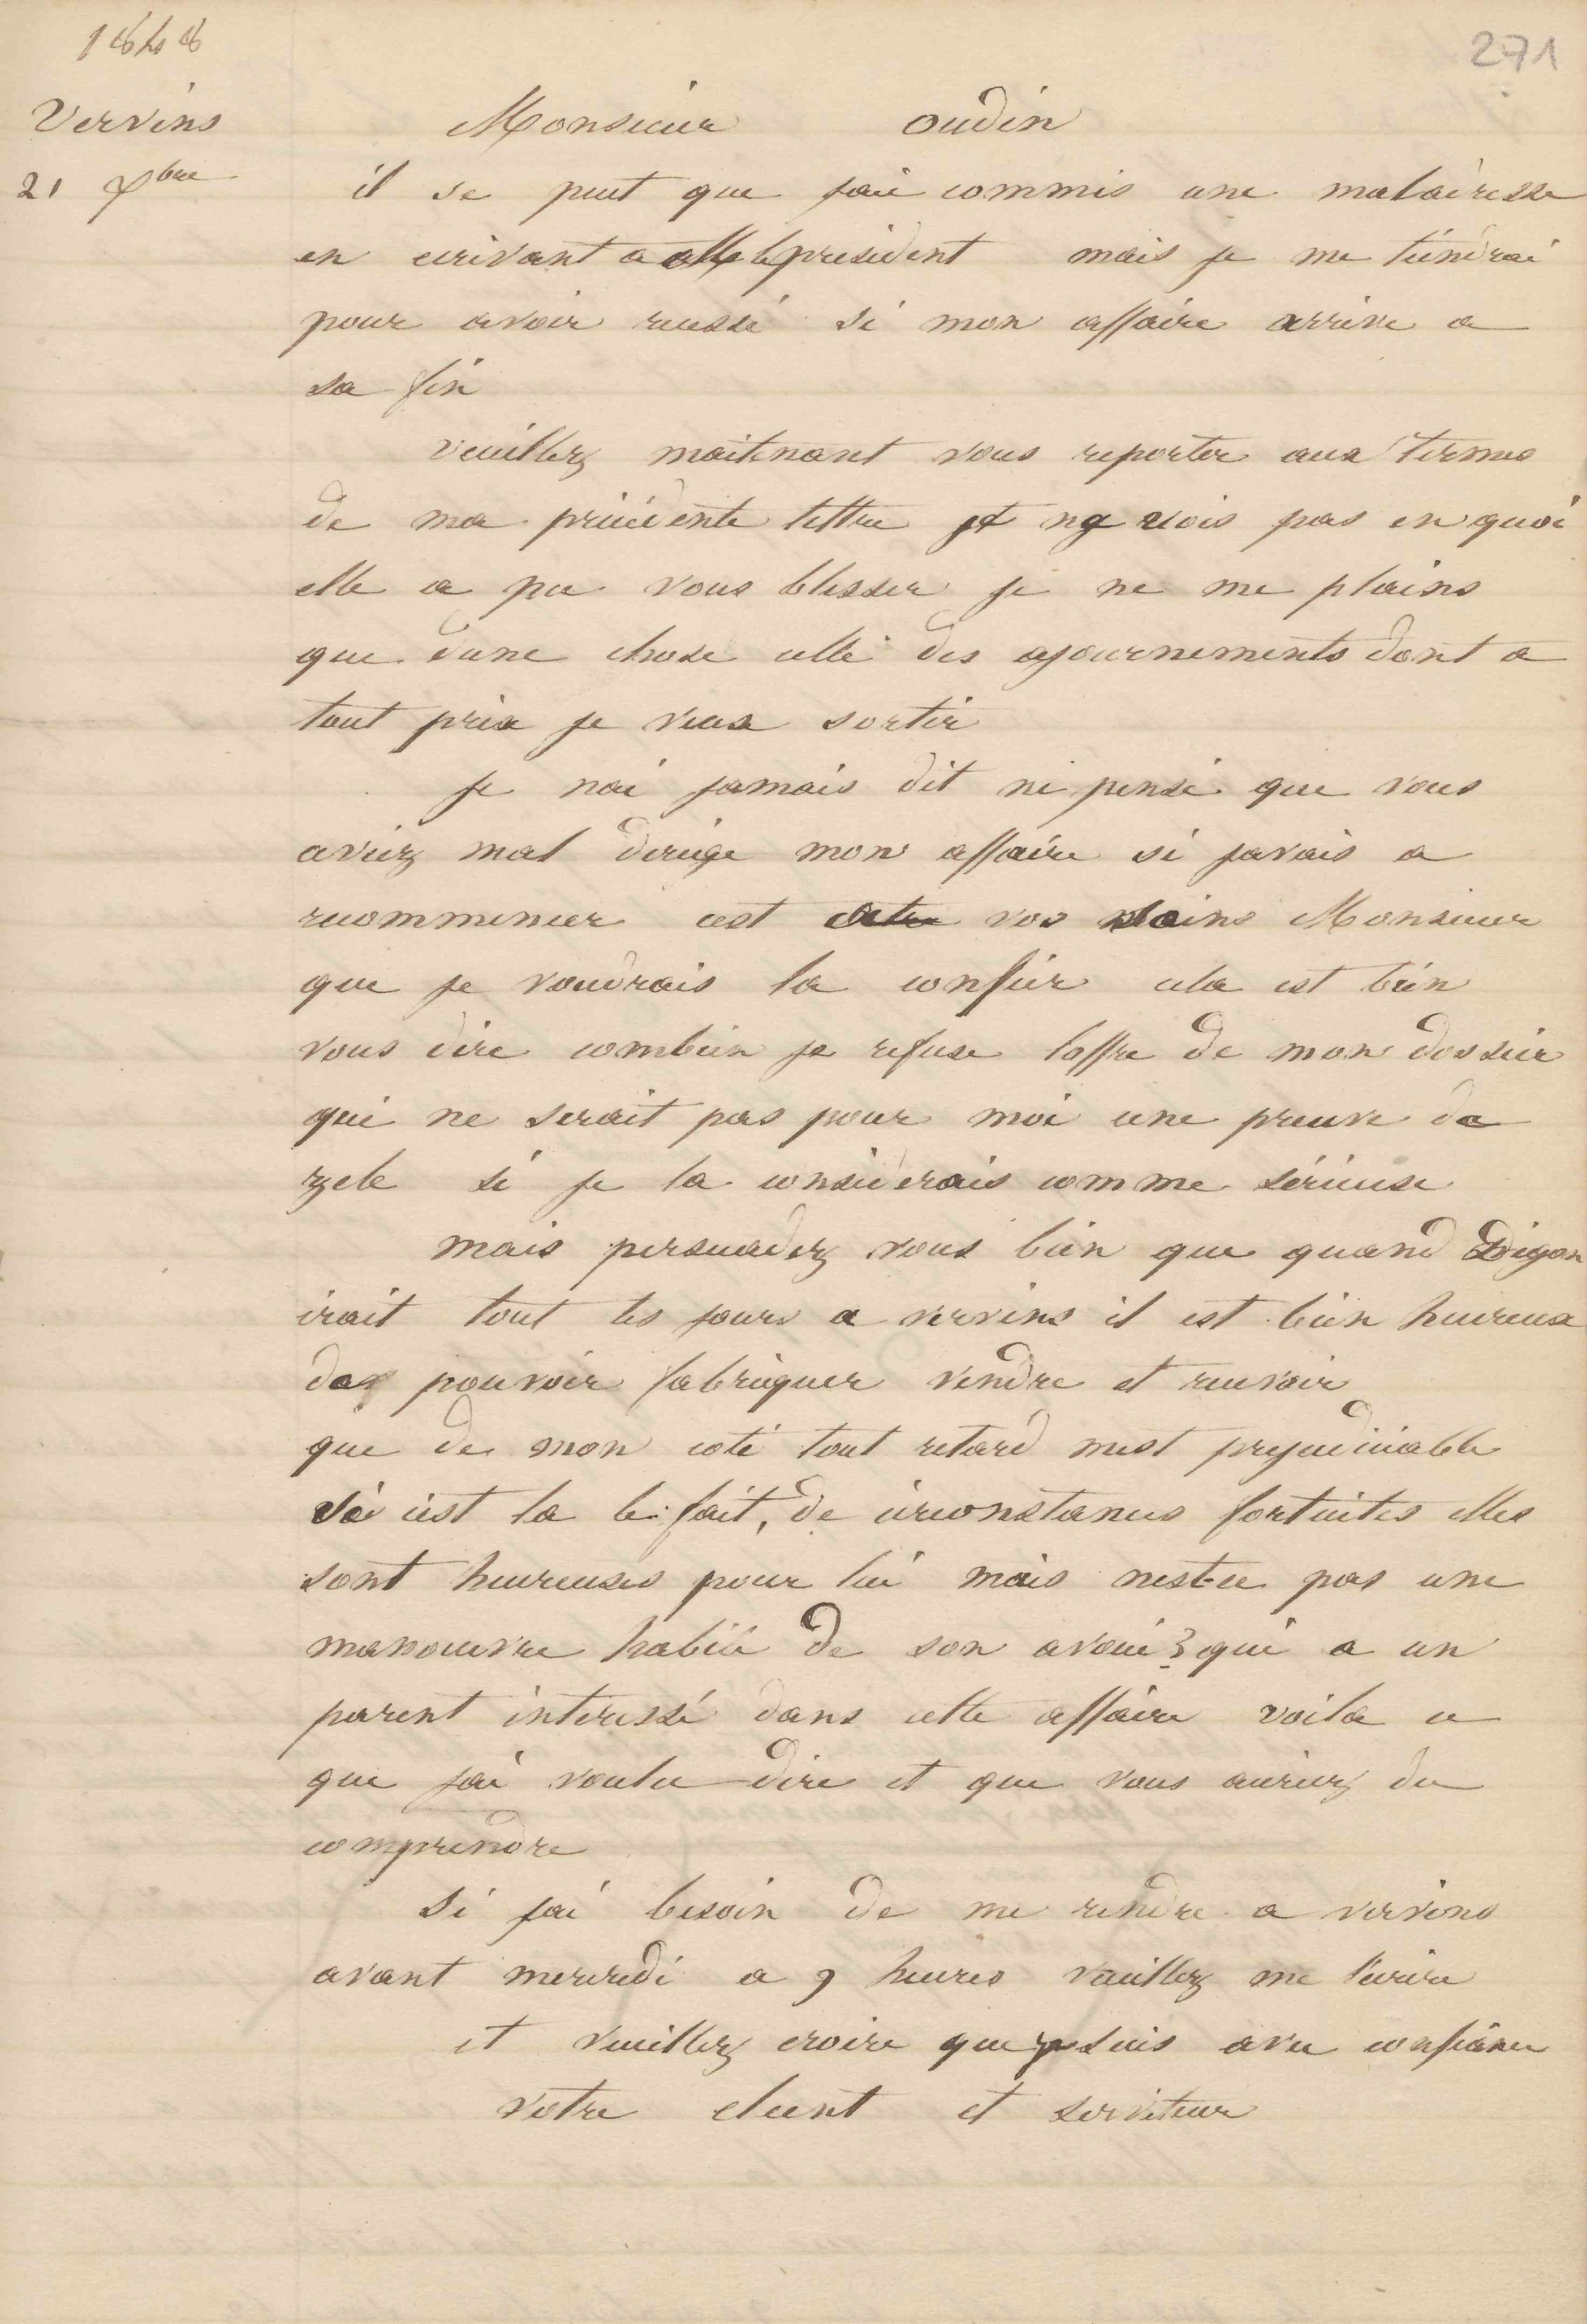 1848
271
Vervins
Monsieur oudin
21 Xbre
il se peut que jaie commis une maladresse
en ecrivant a Mr le president mais je me tiendrai
pour avoir reussi si mon affaire arrive a
sa fin
veuillez maitenant vous reporter aux termes
de ma précédente lettre je ne vois pas en quoi
elle a pu vous blesser je ne me plains
que dune chose celle des ajournements dont a
tout prix je veux sortir
je nai jamais dit ni pensé que vous
aviez mal dirigé mon affaire si javais a
recommencer cest a vos soins Monsieur
que je voudrais la confier cela est bien
vous dire combien je refuse loffre de mon dossier
qui ne serait pas pour moi une preuve de
zele si je la considerais comme sérieuse
mais persuadez vous bien que quand
irait tout les jours a vervins il est bien heureux
de pouvoir fabriquer vendre et recevoir
que de mon coté tout retard mest prejudiciable
si cest la le fait, de circonstances fortuites elles
sont heureuses pour lui mais nest-ce pas une
manoeuvre habile de son avoué? qui a un
parent interessé dans cette affaire voila ce
que jai voulu dire et que vous auriez du
comprendre
si jai besoin de me rendre a vervins
avant mercredi a 9 heures veuillez me lecrire
et veuillez croire que je suis avec confiance
votre client et serviteur